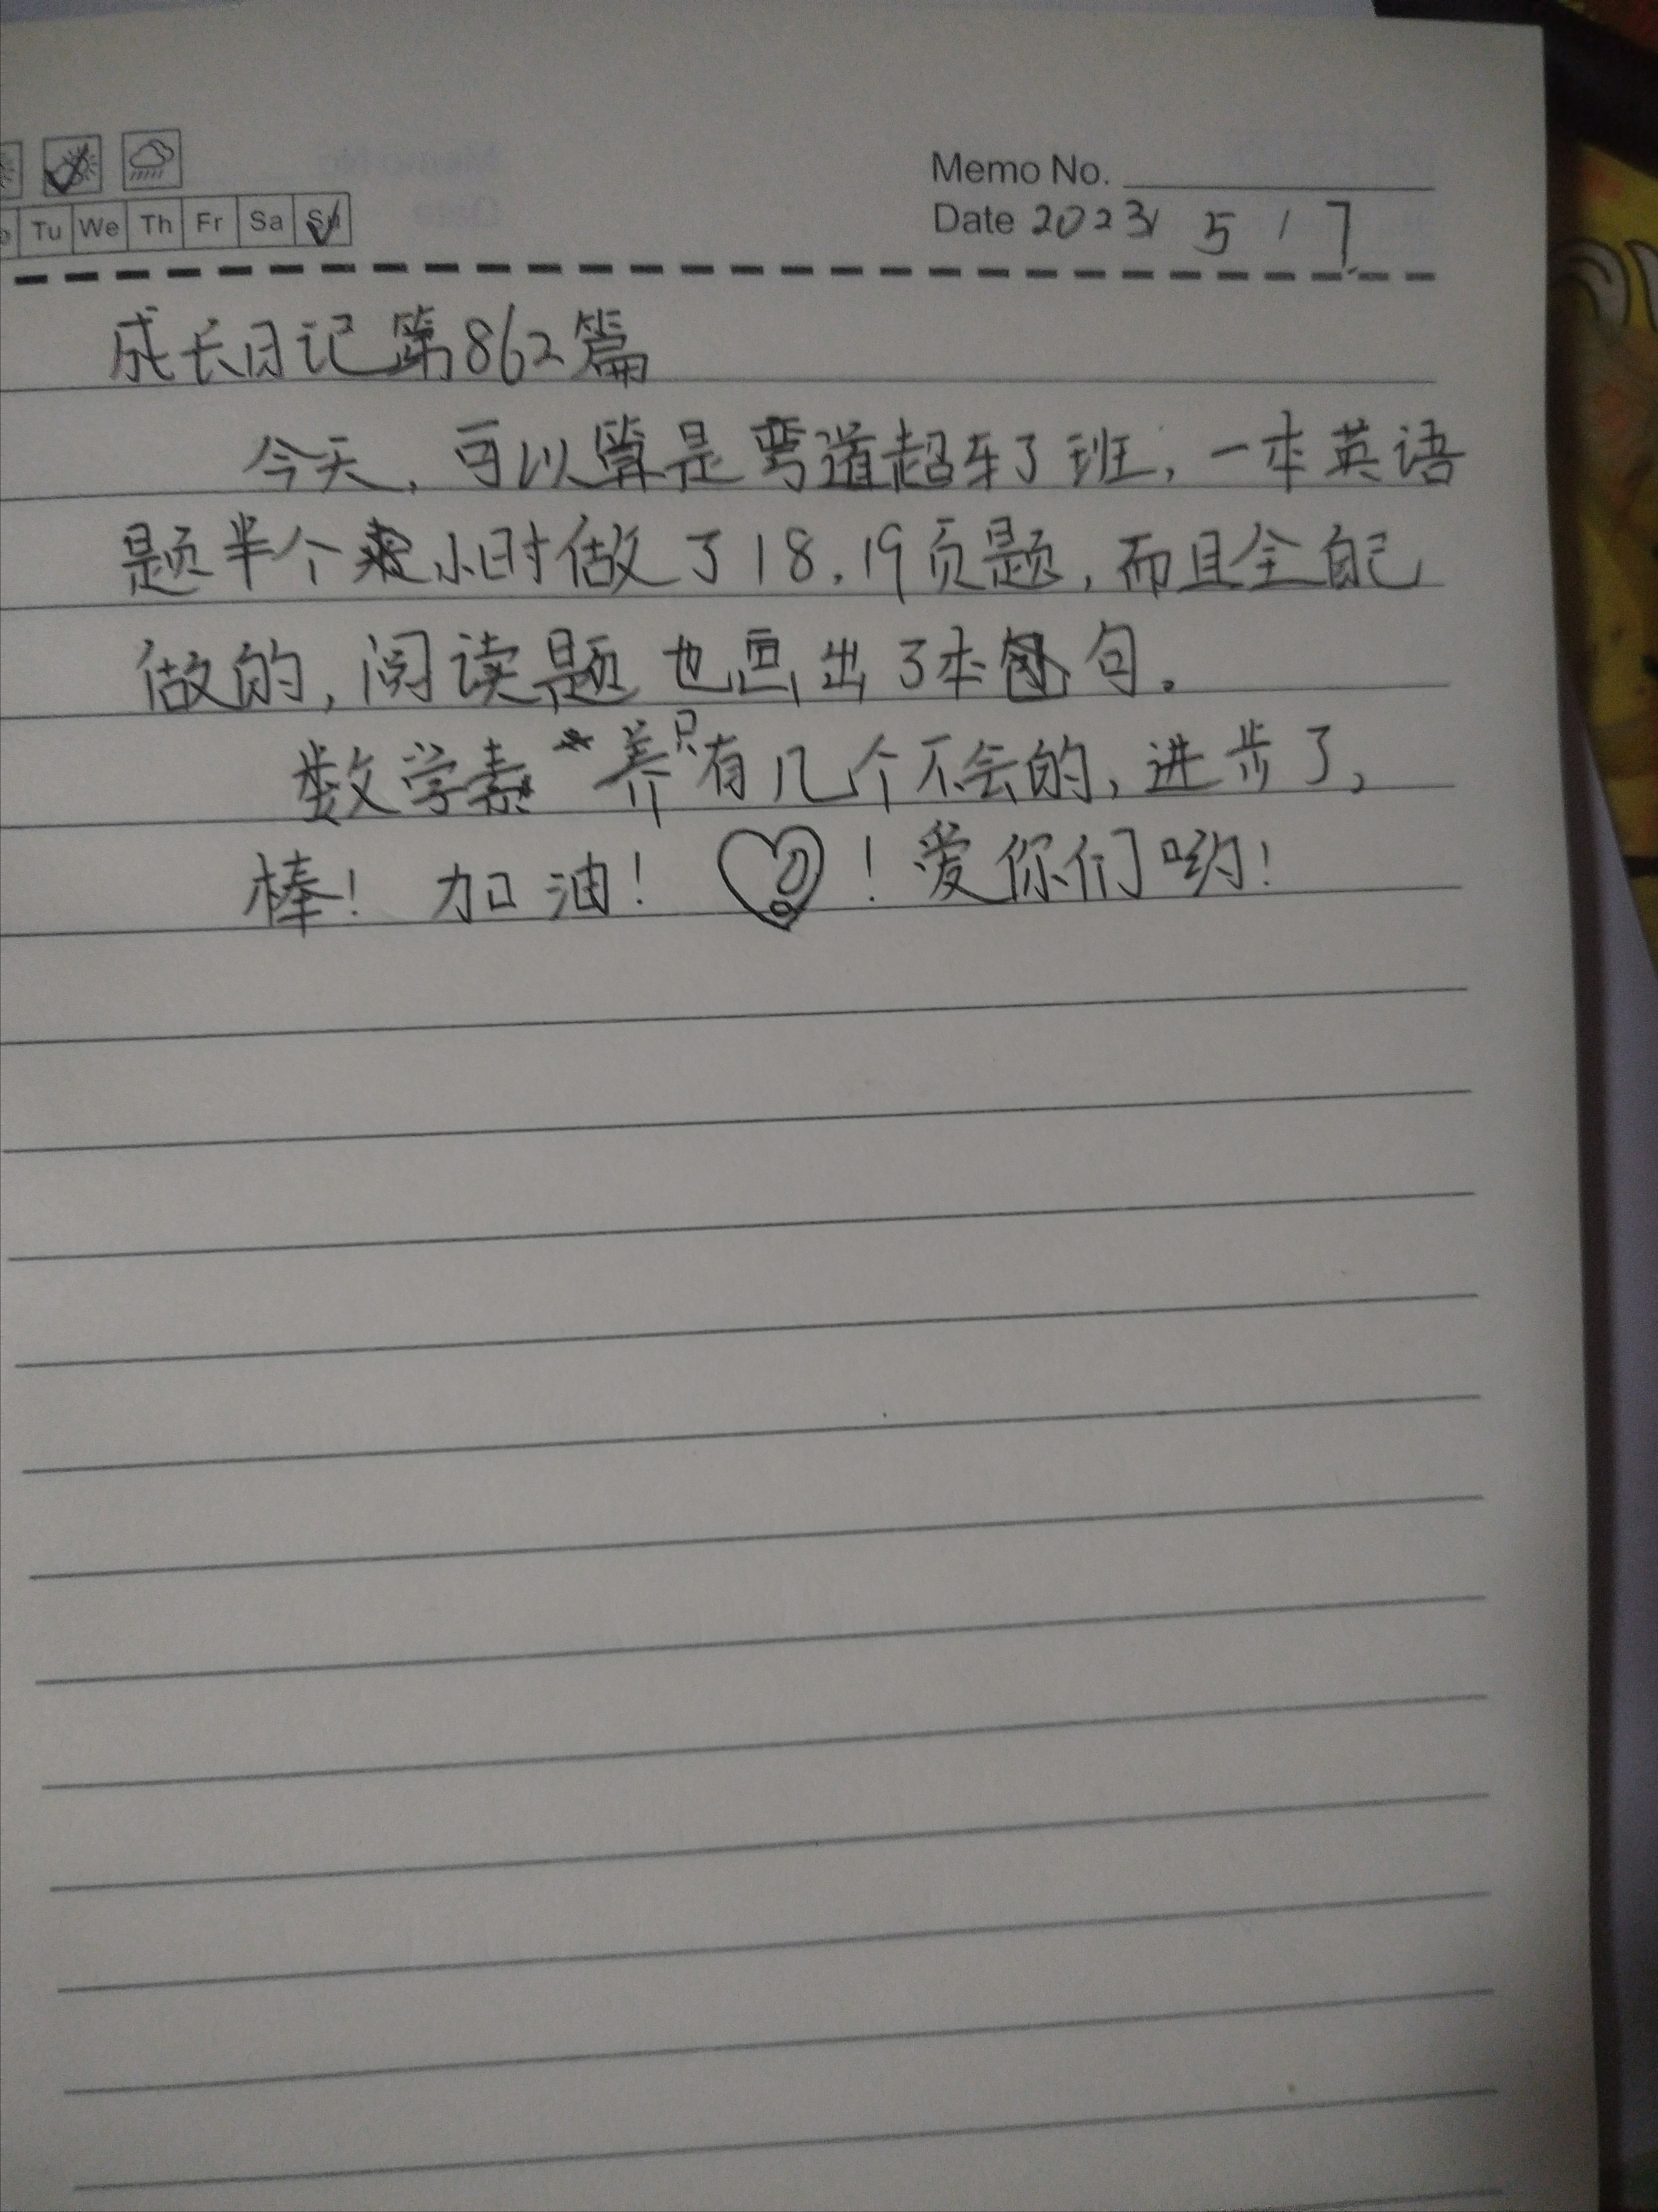 Memo No.
Tu We Th Fr Sa Su
Date 2023 / 5 / 7
成长日记第862篇
今天,可以算是弯道超车了班,一本英语
题半个小时做了18.19页题,而且全自己
做的,阅读题也画出了本句。
数学素养只有几个不会的,进步了,
棒!加油! !爱你们哟!